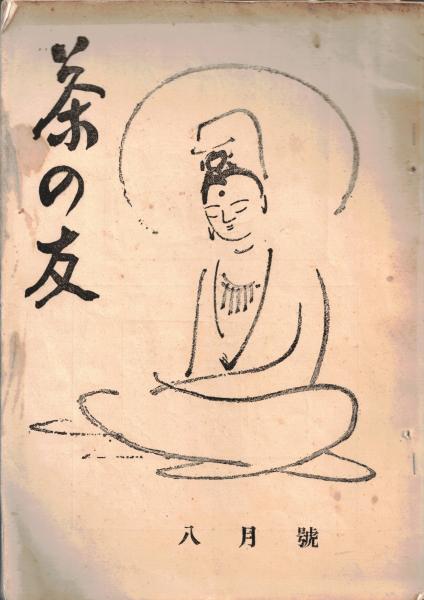 茶の友
八月號